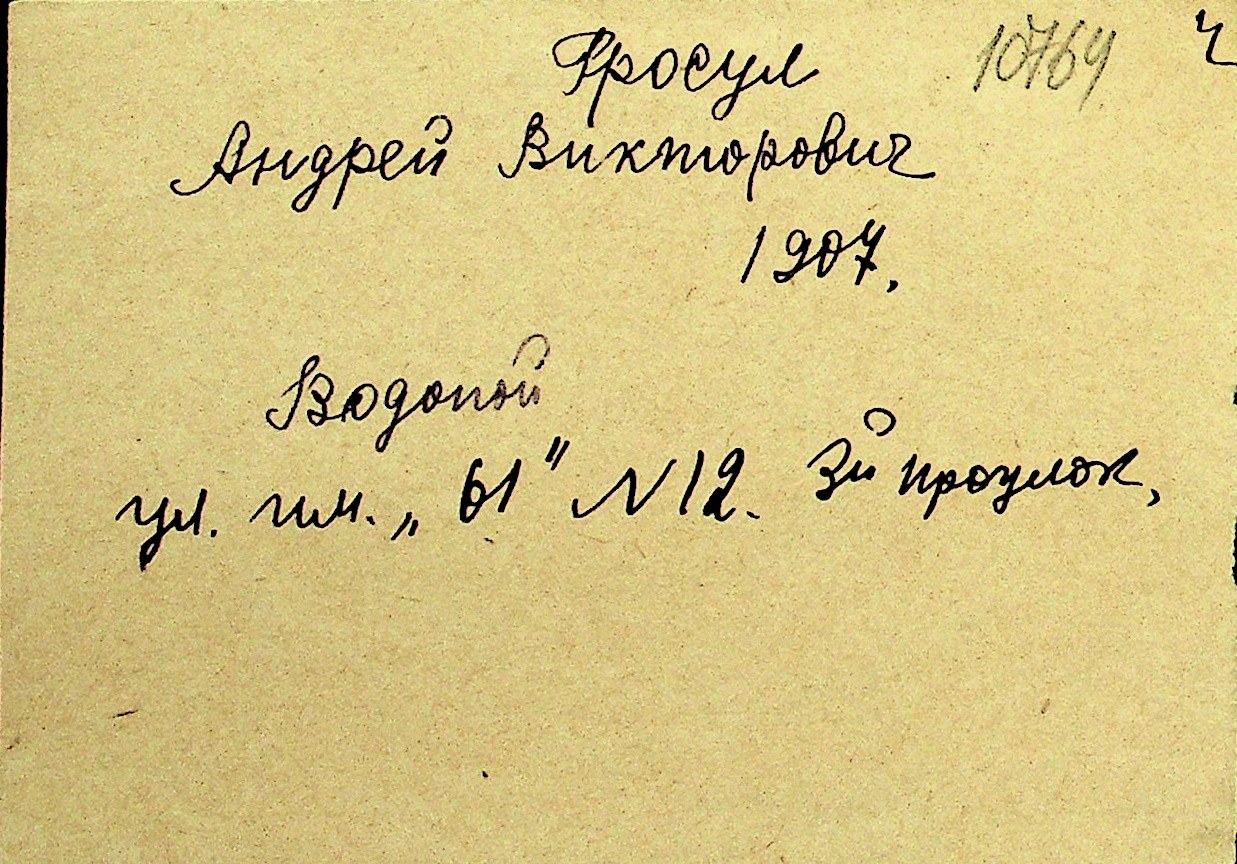 Фросул 10764 Ч
Андрей Викторович
1907.
Водопой
ул. им. „61" N 12. 3й проулок,